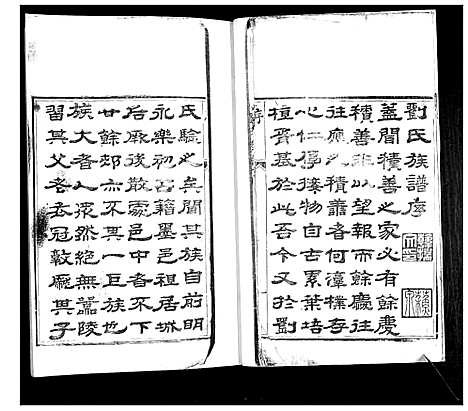 劉氏族譜序
蓋聞積善之家必有餘慶
積善非以望報而餘慶往
往應之積蕭者何渾樸存
心仁厚接物自古累葉培
植胥基於此吾今又於劉
氏驗之矣聞其族自前明
永樂初占籍墨邑祖居城
后厥後散處邑中者不下
廿餘邨亦不其一巨族也
族大者人眾然絕無囂陵
習其父老衣冠敦厐其子